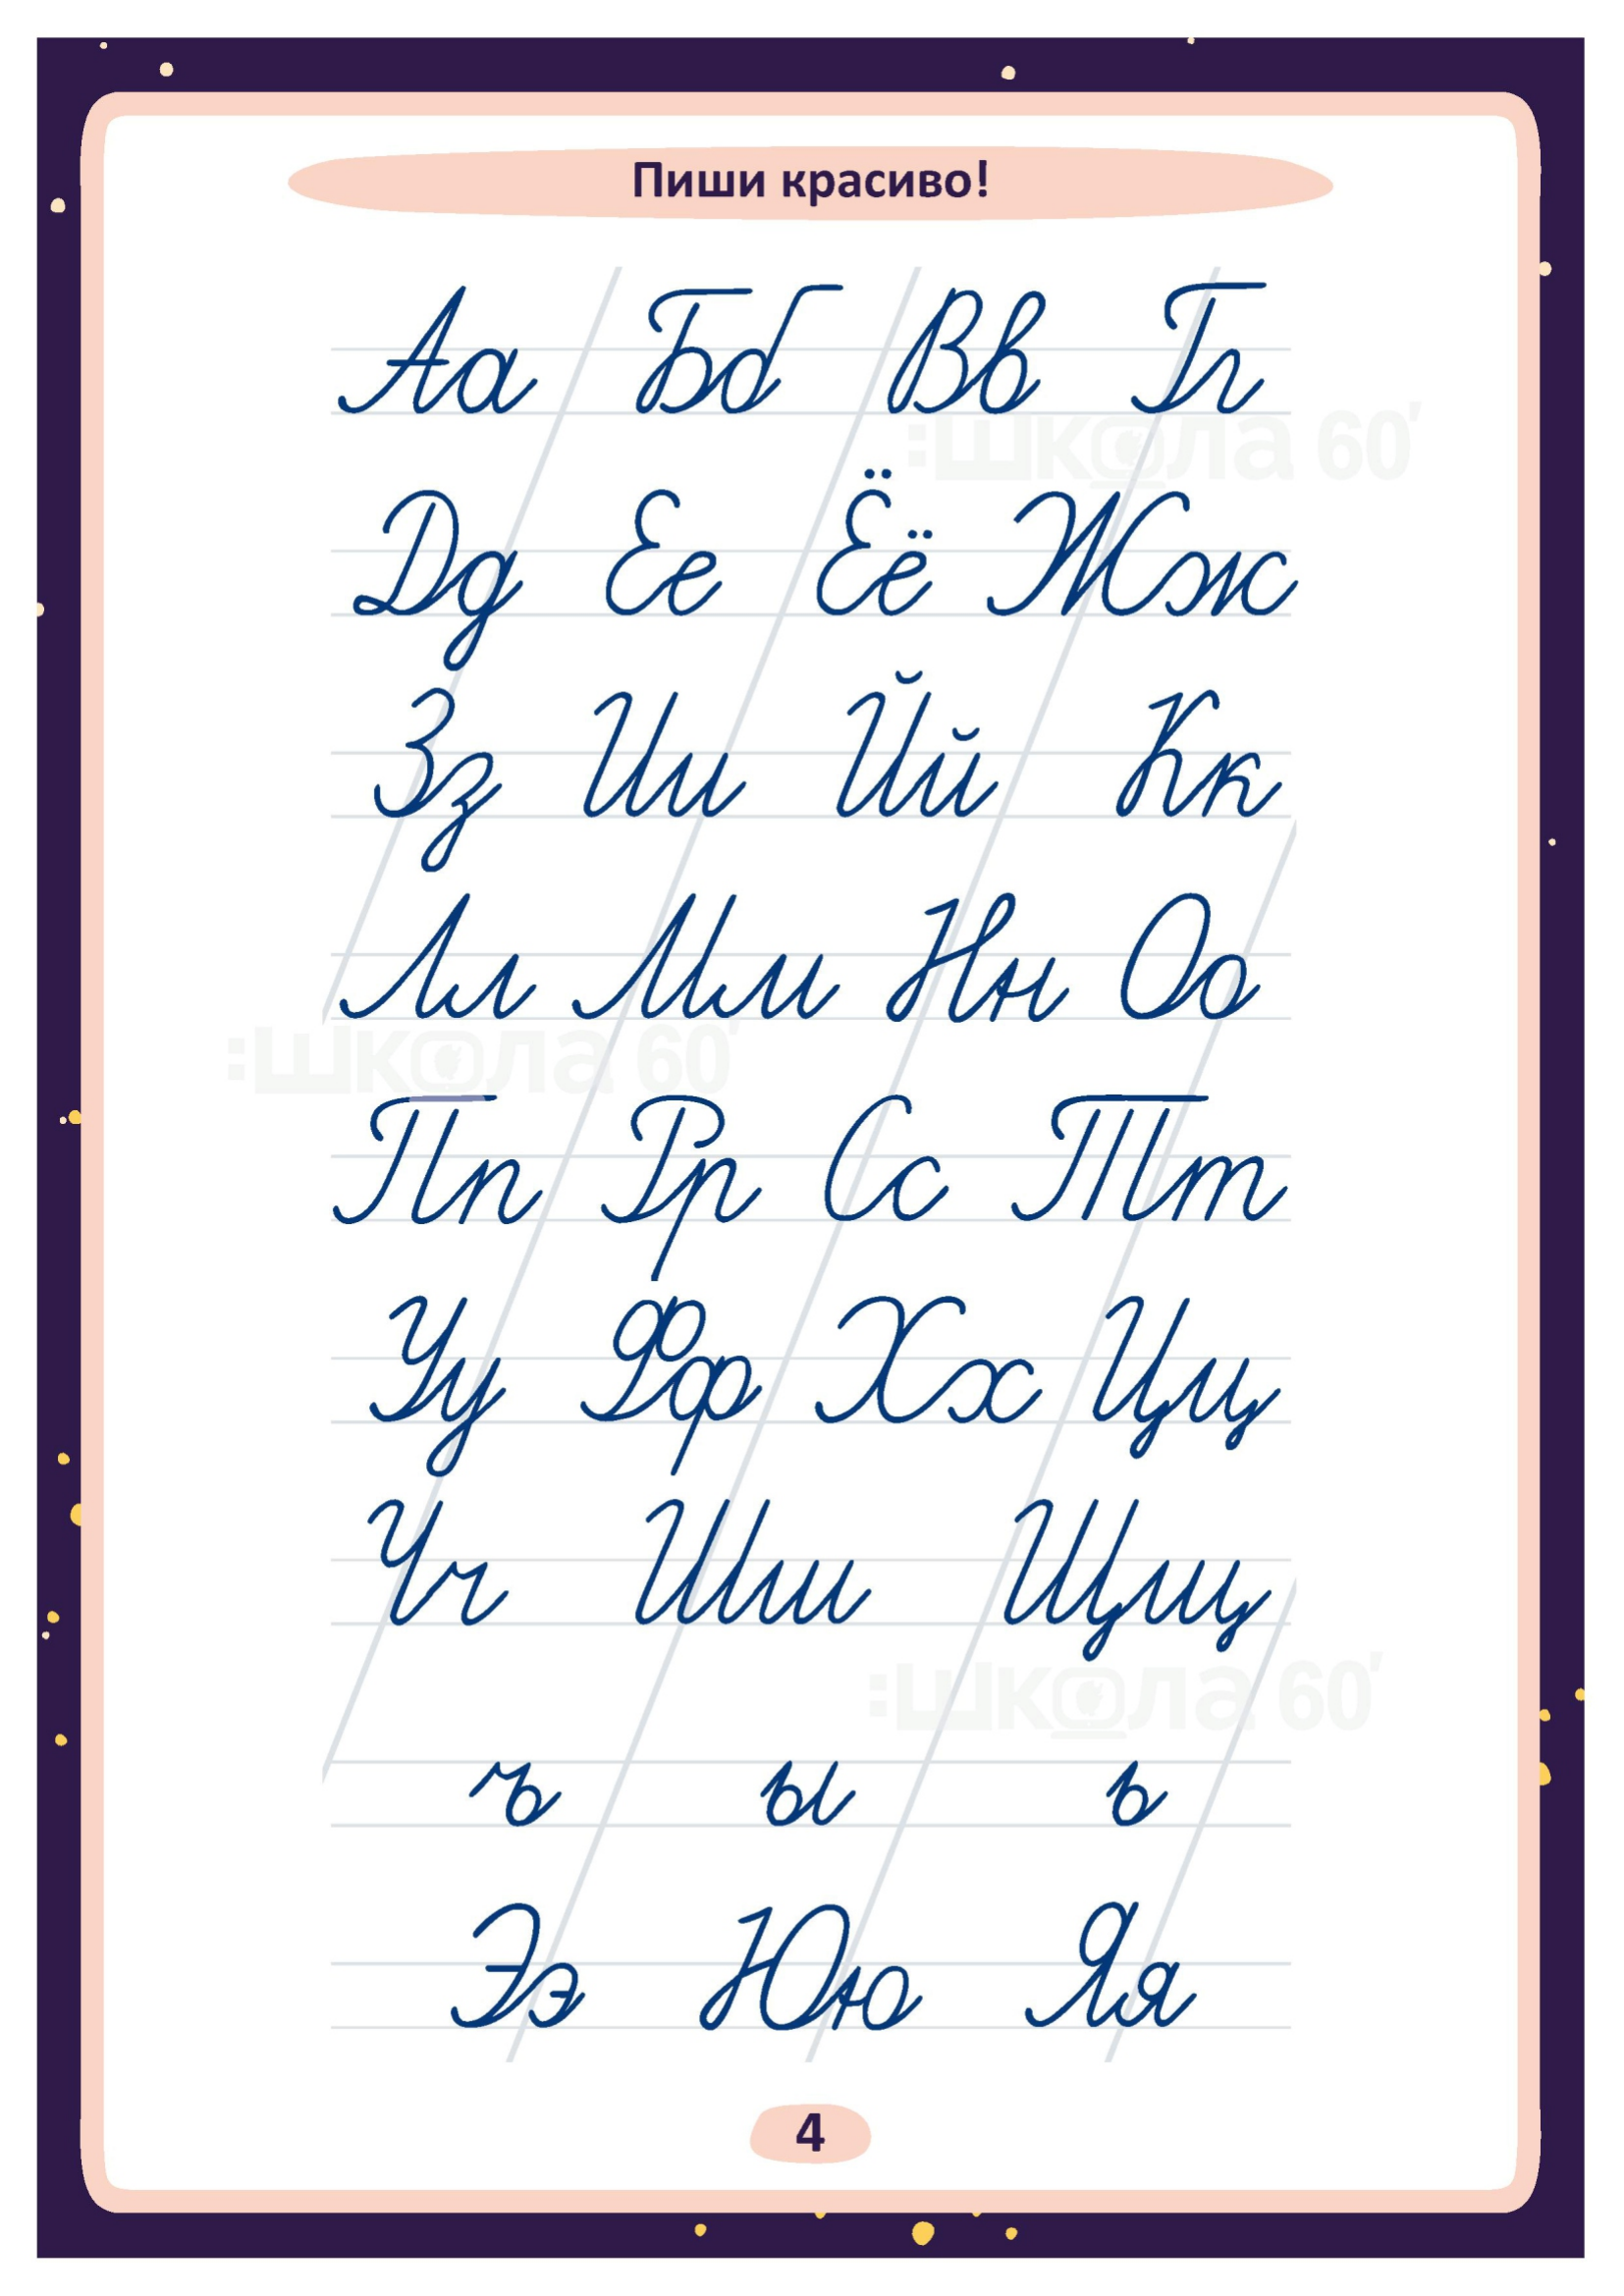 Пиши красиво!
Аа Бб Вв Гг
:Школа 60'
Дд Ее Ёё Жж
Зз Ии Йй Кк
Лл Мм Нн Оо
:Школа 60'
Пп Рр Сс Тт
Уу Фф Хх Цц
Чч Шш Щщ
:Школа 60'
ъ ы ь
Ээ Юю Яя
4